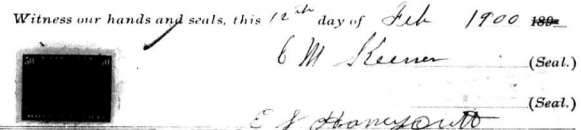 Witness our hands and seals, this 12th day of Feb 1900 189
C M Keener (Seal.)
(Seal.)
E J Honeycutt